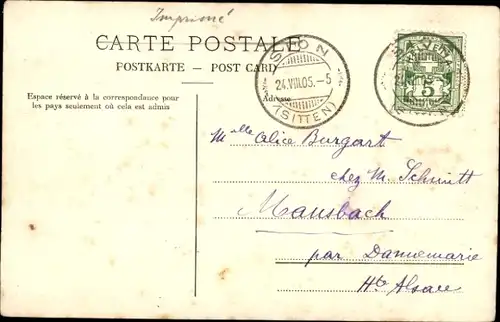 Imprimé
CARTE POSTALE
POSTKARTE — POST CARD
SION
24.VIII.05.–5
(SITTEN)
5
Espace réservé à la correspondance pour
les pays seulement où cela est admis
Adresse
Mlle Alice Burgart
chez M. Schmitt
Mansbach
par Dannemarie
Hte Alsace